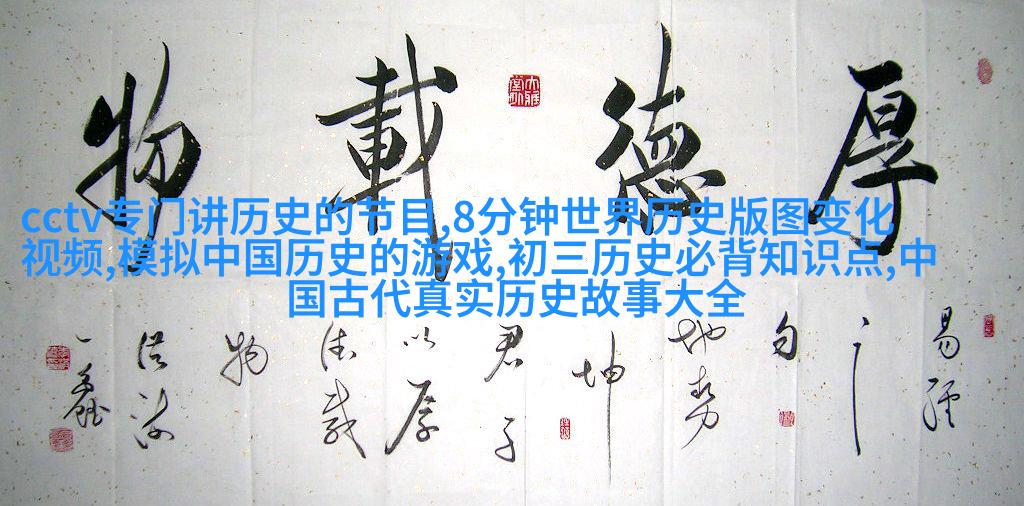 厚德載物
cctv专门讲历史的节目,8分钟世界历史版图变化
视频,模拟中国历史的游戏,初三历史必背知识点,中
国古代真实历史故事大全
易經
之
句
地势
坤
君子
以厚
德载
物